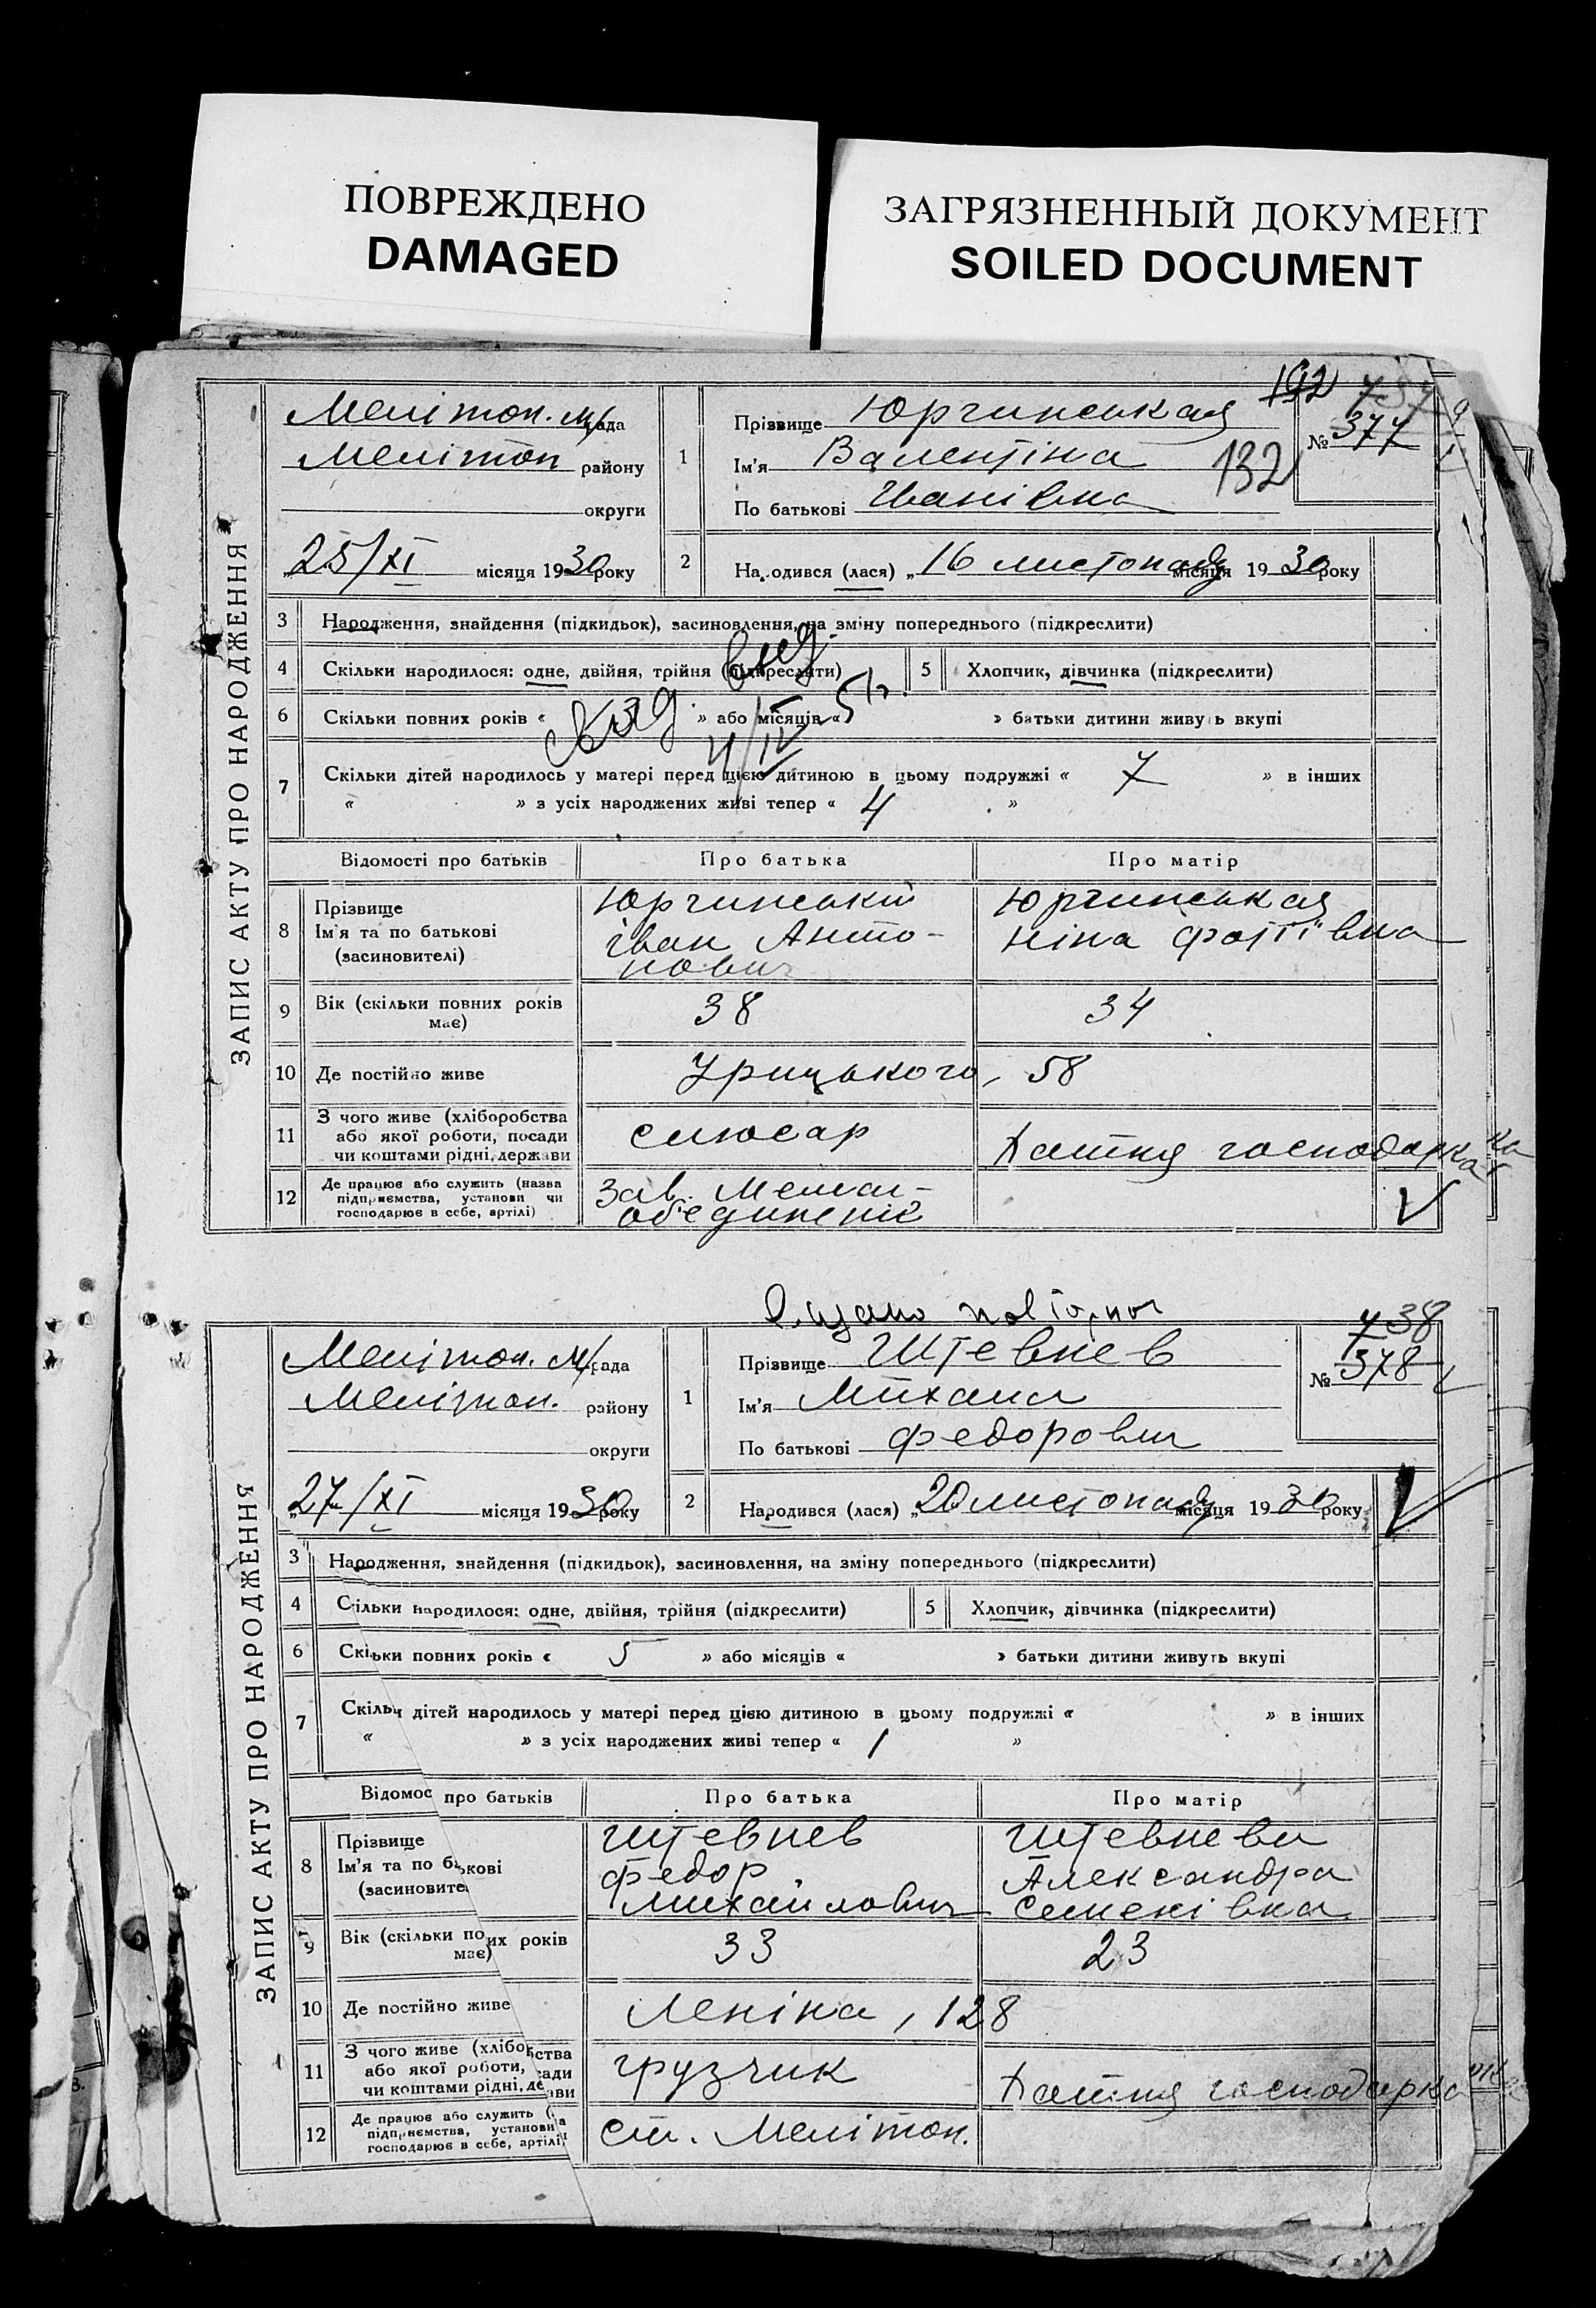 ПОВРЕЖДЕНО
DAMAGED
ЗАГРЯЗНЕННЫЙ ДОКУМЕНТ
SOILED DOCUMENT
ЗАПИС АКТУ ПРО НАРОДЖЕННЯ
192
737
Мелітоп. м/рада
Мелітоп району
округи
„25/XI місяця 1930 року
1
Прізвище Юргинськая
Ім'я Валентіна
По батькові Іванівна
132
№ 377
2 Народився (лася) „16 листопаду місяця 1930 року
3 Народження, знайдення (підкидьок), засиновлення, на зміну попереднього (підкреслити)
4 Скільки народилося: одне, двійня, трійня (підкреслити)
5 Хлопчик, дівчинка (підкреслити)
6 Скільки повних років « » або місяців « » батьки дитини живуть вкупі
7 Скільки дітей народилось у матері перед цією дитиною в цьому подружжі « 7 » в інших
« » з усіх народжених живі тепер « 4 »
Відомості про батьків Про батька Про матір
8 Прізвище
Ім'я та по батькові
(засиновителі)
Юргинський
іван Анто-
нович
Юргинськая
ніна Фотіївна
9 Вік (скільки повних років
має)
38 34
10 Де постійно живе Урицького, 58
11 З чого живе (хліборобства
або якої роботи, посади
чи коштами рідні, держави
слюсар
хатня господарка
12 Де працює або служить (назва
підприємства, установи чи
господарює в себе, артілі)
Зав.
ЗАПИС АКТУ ПРО НАРОДЖЕННЯ
738
Мелітоп. м/рада
Мелітоп. району
округи
„27/XI місяця 1930 року
1
Прізвище Штевнев
Ім'я Михаил
По батькові Федорович
№ 378
2 Народився (лася) „20 листопаду місяця 1930 року
3 Народження, знайдення (підкидьок), засиновлення, на зміну попереднього (підкреслити)
4 Скільки народилося: одне, двійня, трійня (підкреслити)
5 Хлопчик, дівчинка (підкреслити)
6 Скільки повних років « 5 » або місяців « » батьки дитини живуть вкупі
7 Скільки дітей народилось у матері перед цією дитиною в цьому подружжі « » в інших
« » з усіх народжених живі тепер « 1 »
Відомос про батьків Про батька Про матір
8 Прізвище
Ім'я та по батькові
(засиновите
Штевнев
Федор
Михайлович
Штевнева
Александра
Семенівна
9 Вік (скільки по их років
має)
33 23
10 Де постійно живе Леніна, 128
11 З чого живе (хліборобства
або якої роботи, сади
чи коштами рідні, де ави
грузчик
хатня господарка
12 Де працює або служить (
підприємства, установи
господарює в себе, артілі
ст. Мелітоп.